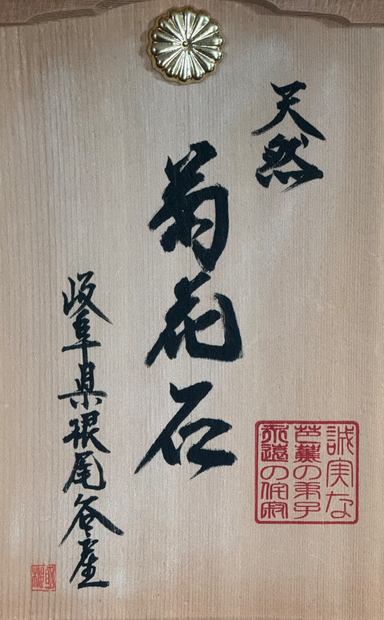 天然
菊花石
岐阜県根尾谷産
誠実な
芭蕉の弟子
永遠の侘寂